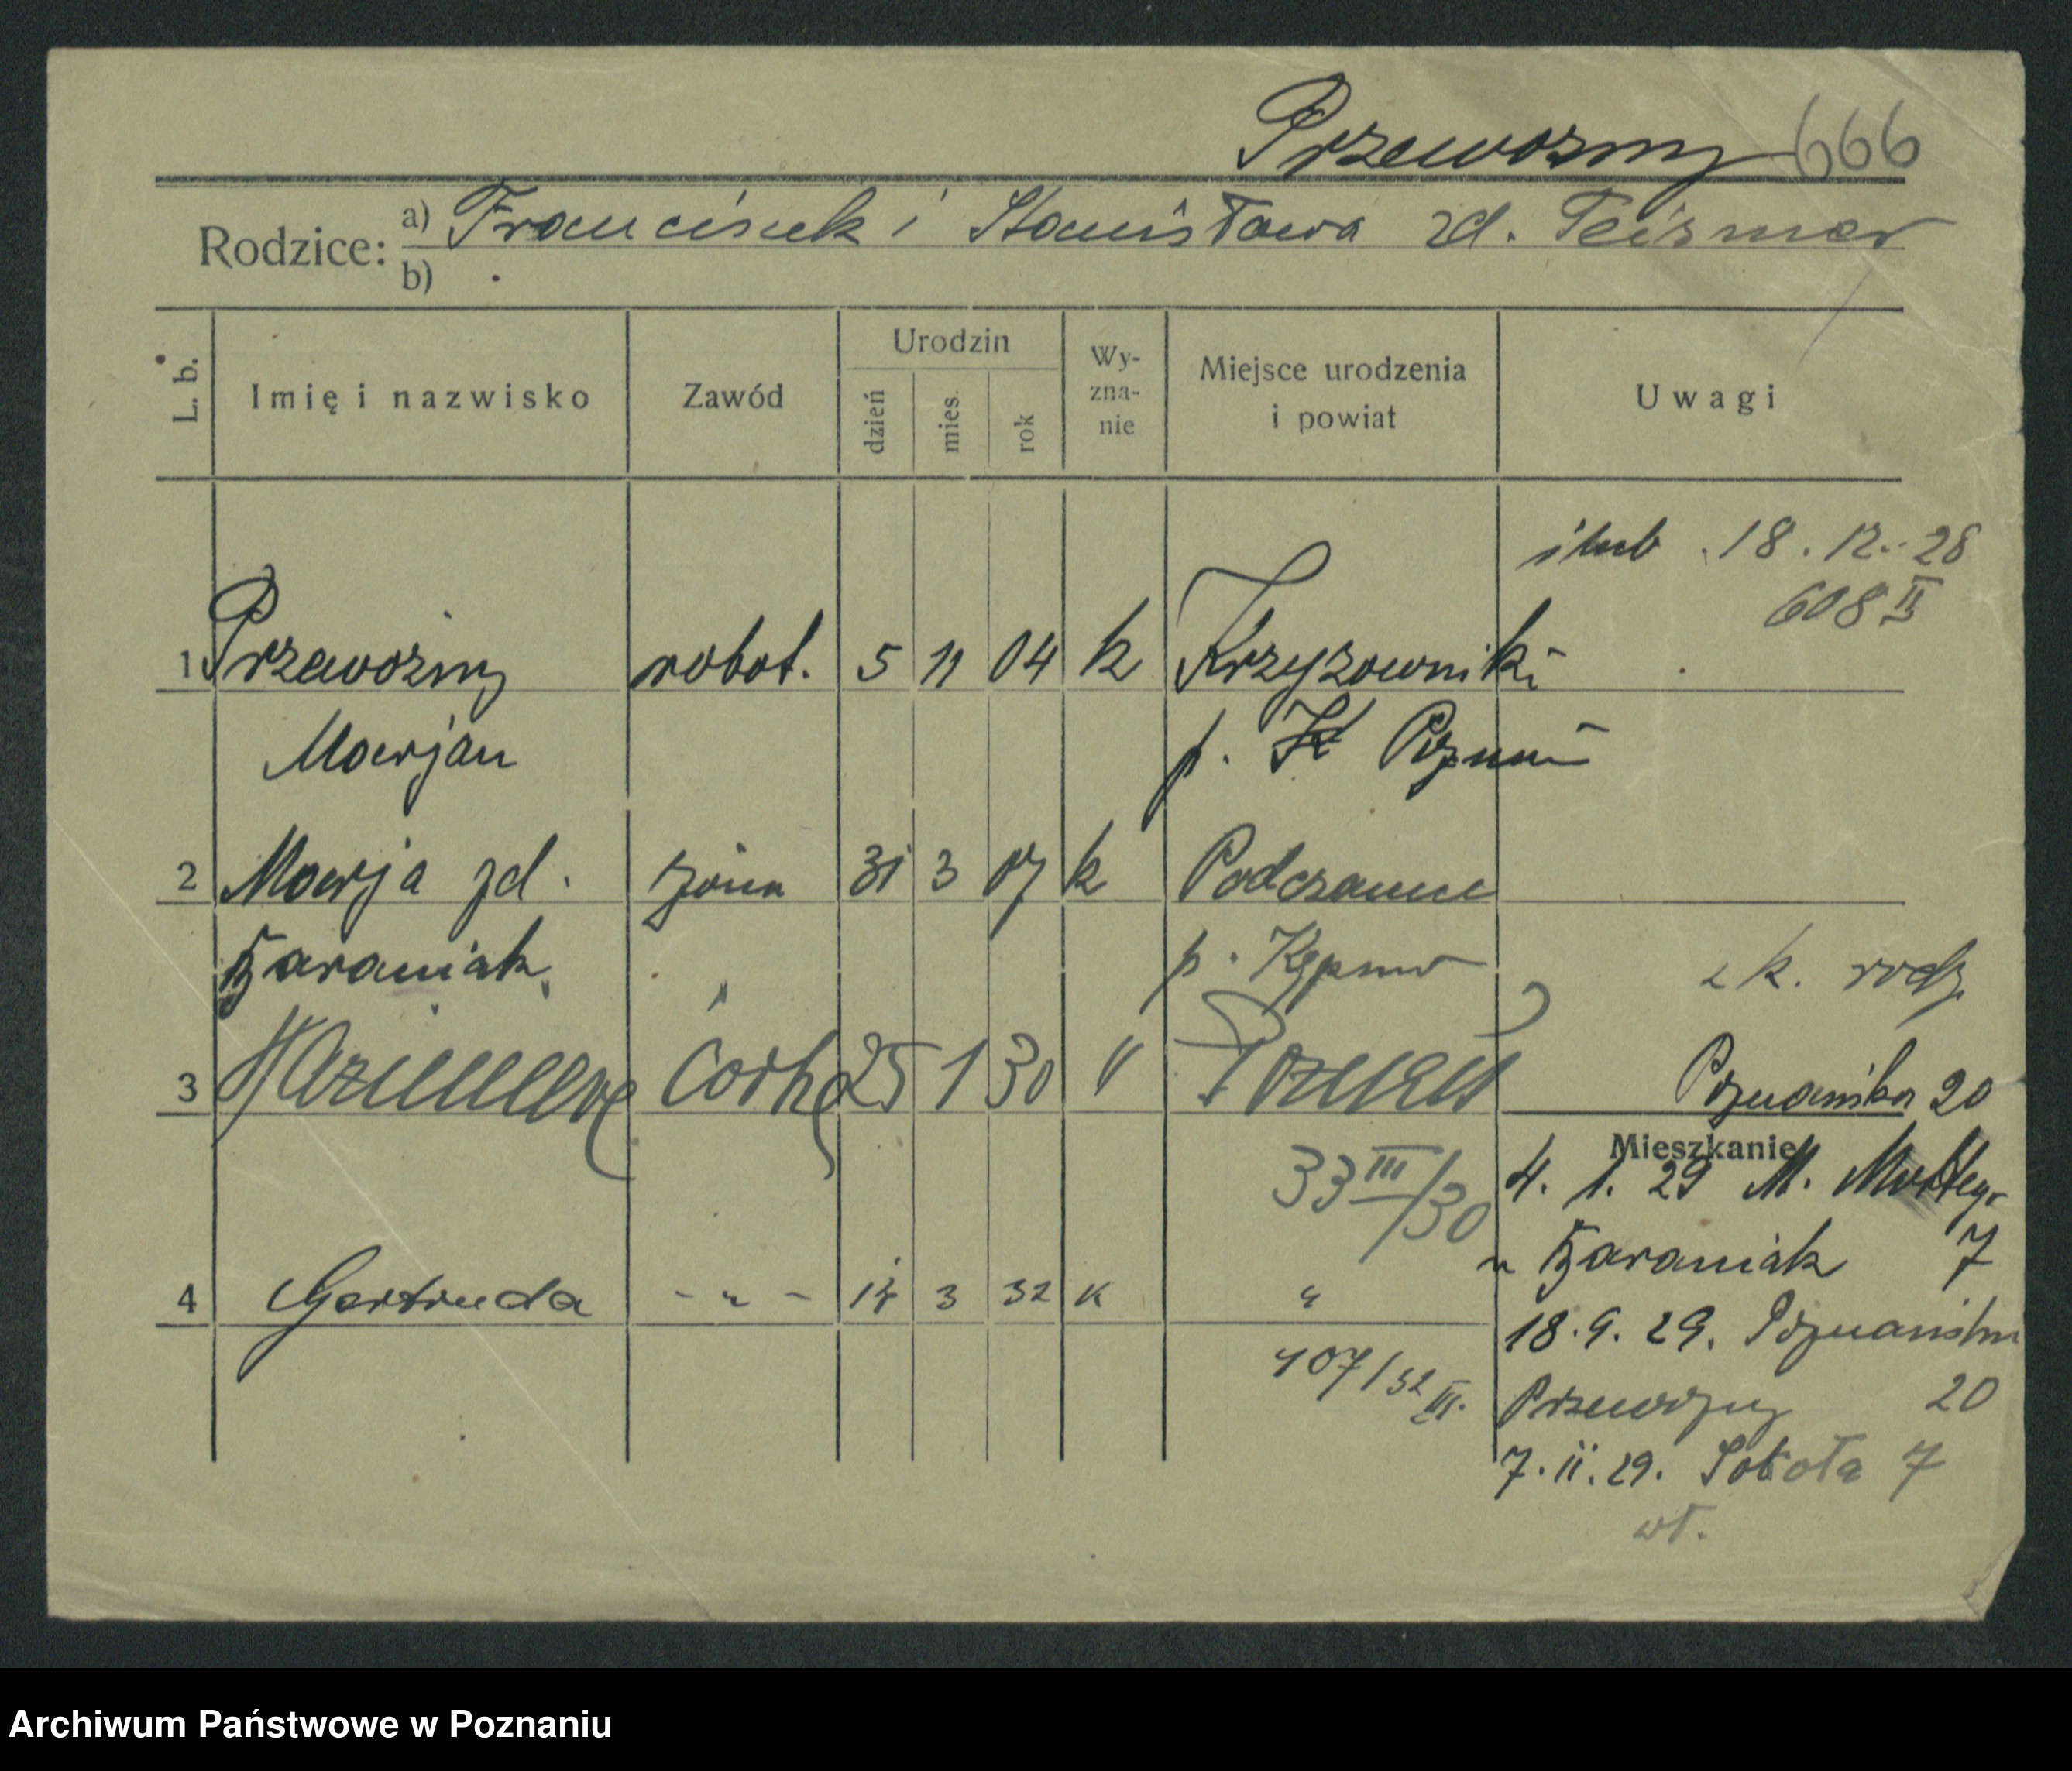 Przewoźny 666
Rodzice: a) Franciszek i Stanisława zd. Teismer
b)
L. b. Imię i nazwisko Zawód Urodzin dzień mies. rok Wy-zna-nie Miejsce urodzenia i powiat Uwagi
ślub 18. 12. 28
608 II
1 Przewoźny robot. 5 11 04 k Krzyżowniki
Marjan p. Poznań
2 Marja zd. żona 31 3 07 k Podzamcze
Baraniak p. Kępno
z k. rodz.
3 Kazimiera córka 25 1 30 " Poznań
Poznańska 20
Mieszkanie
33 III/30
4. 1. 29 M.
u Baraniak 7
4 Gertruda - " - 3 32 k "
18. 9. 29. Poznańska
107/32 III.
Przewoźny 20
7. 11. 29. Sobota 7
wł.
Archiwum Państwowe w Poznaniu